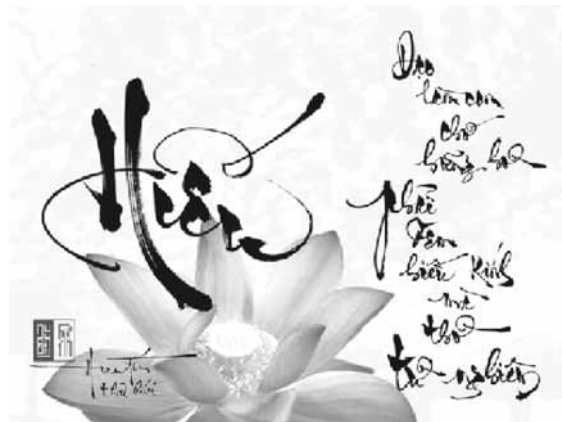 Hiếu
Đạo
làm con
chớ
hững hờ
phải
đem
hiếu kính
mà
thờ
từ nghiêm